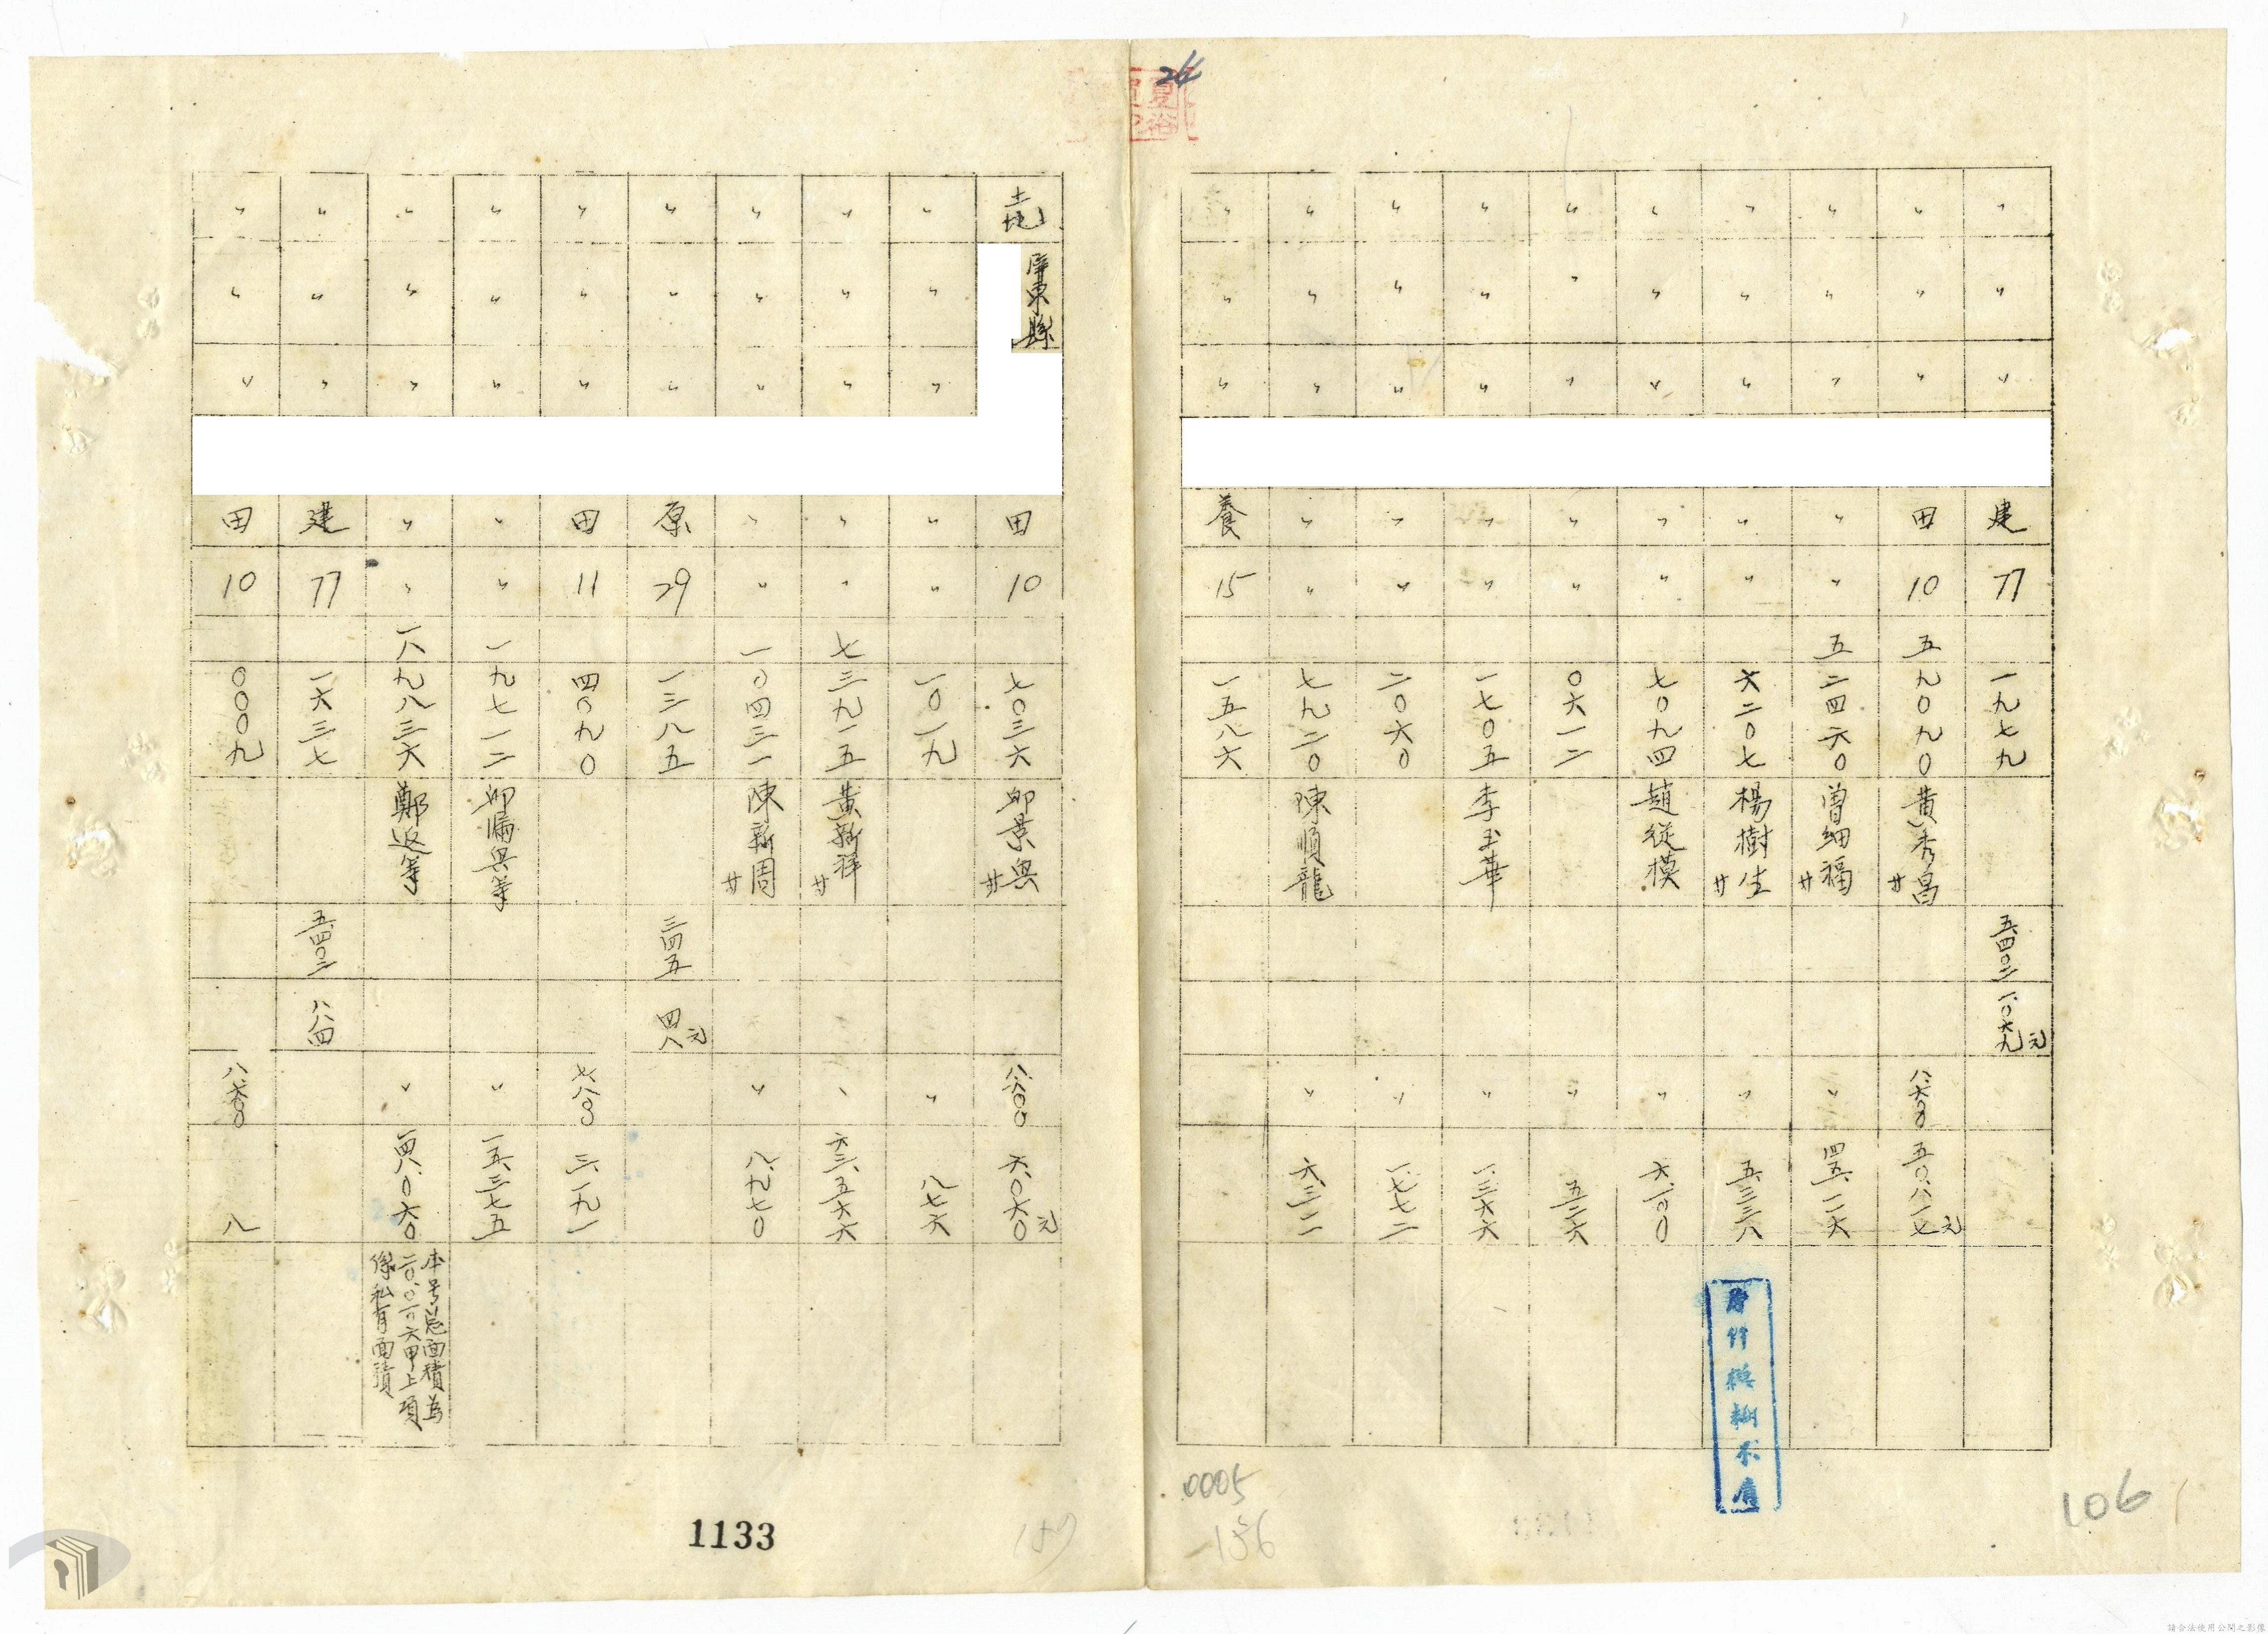 24
建 77 一九七九 五四〇二 一〇六九元
田 10 五九〇九〇 黃秀昌 廿 八六〇〇 五〇八一七元
〃 〃 五二四六〇 曾細福 廿 〃 四五一一六
〃 〃 六二〇七 楊樹生 廿 〃 五三三八
〃 〃 七〇九四 趙從模 〃 六一〇〇
〃 〃 〇六一二 〃 五二六
〃 〃 一七〇五 李玉華 〃
〃 〃 二〇六〇 〃 一七七二
〃 〃 七九二〇 陳順龍 〃
養 15 一五八六
原件模糊不清
0005
156
106
土地 屏東縣 田 10 七〇三六 邱景興 廿 八六〇〇 六〇六〇元
〃 〃 〃 〃 〃 一〇一九 〃 八七六
〃 〃 〃 〃 〃 七三九一五 黃新祥 廿 六三五六六
〃 〃 〃 〃 〃 一〇四三一 陳新周 廿 〃 八九七〇
〃 〃 〃 原 29 一三八五 三四五 四八元
〃 〃 〃 田 11 四〇九〇 七八〇〇 三一九一
〃 〃 〃 〃 〃 一九七一二 等 〃 一五三七五
〃 〃 〃 〃 〃 一八九八三六 鄭返等 〃 一四八〇六〇 本号总面積為二〇〇一〇六甲上項係私有面積
〃 〃 〃 建 77 一六三七 五四〇二 八八四
〃 〃 〃 田 10 〇〇〇九 八六〇〇 八
1133
157
請合法使用公開之影像